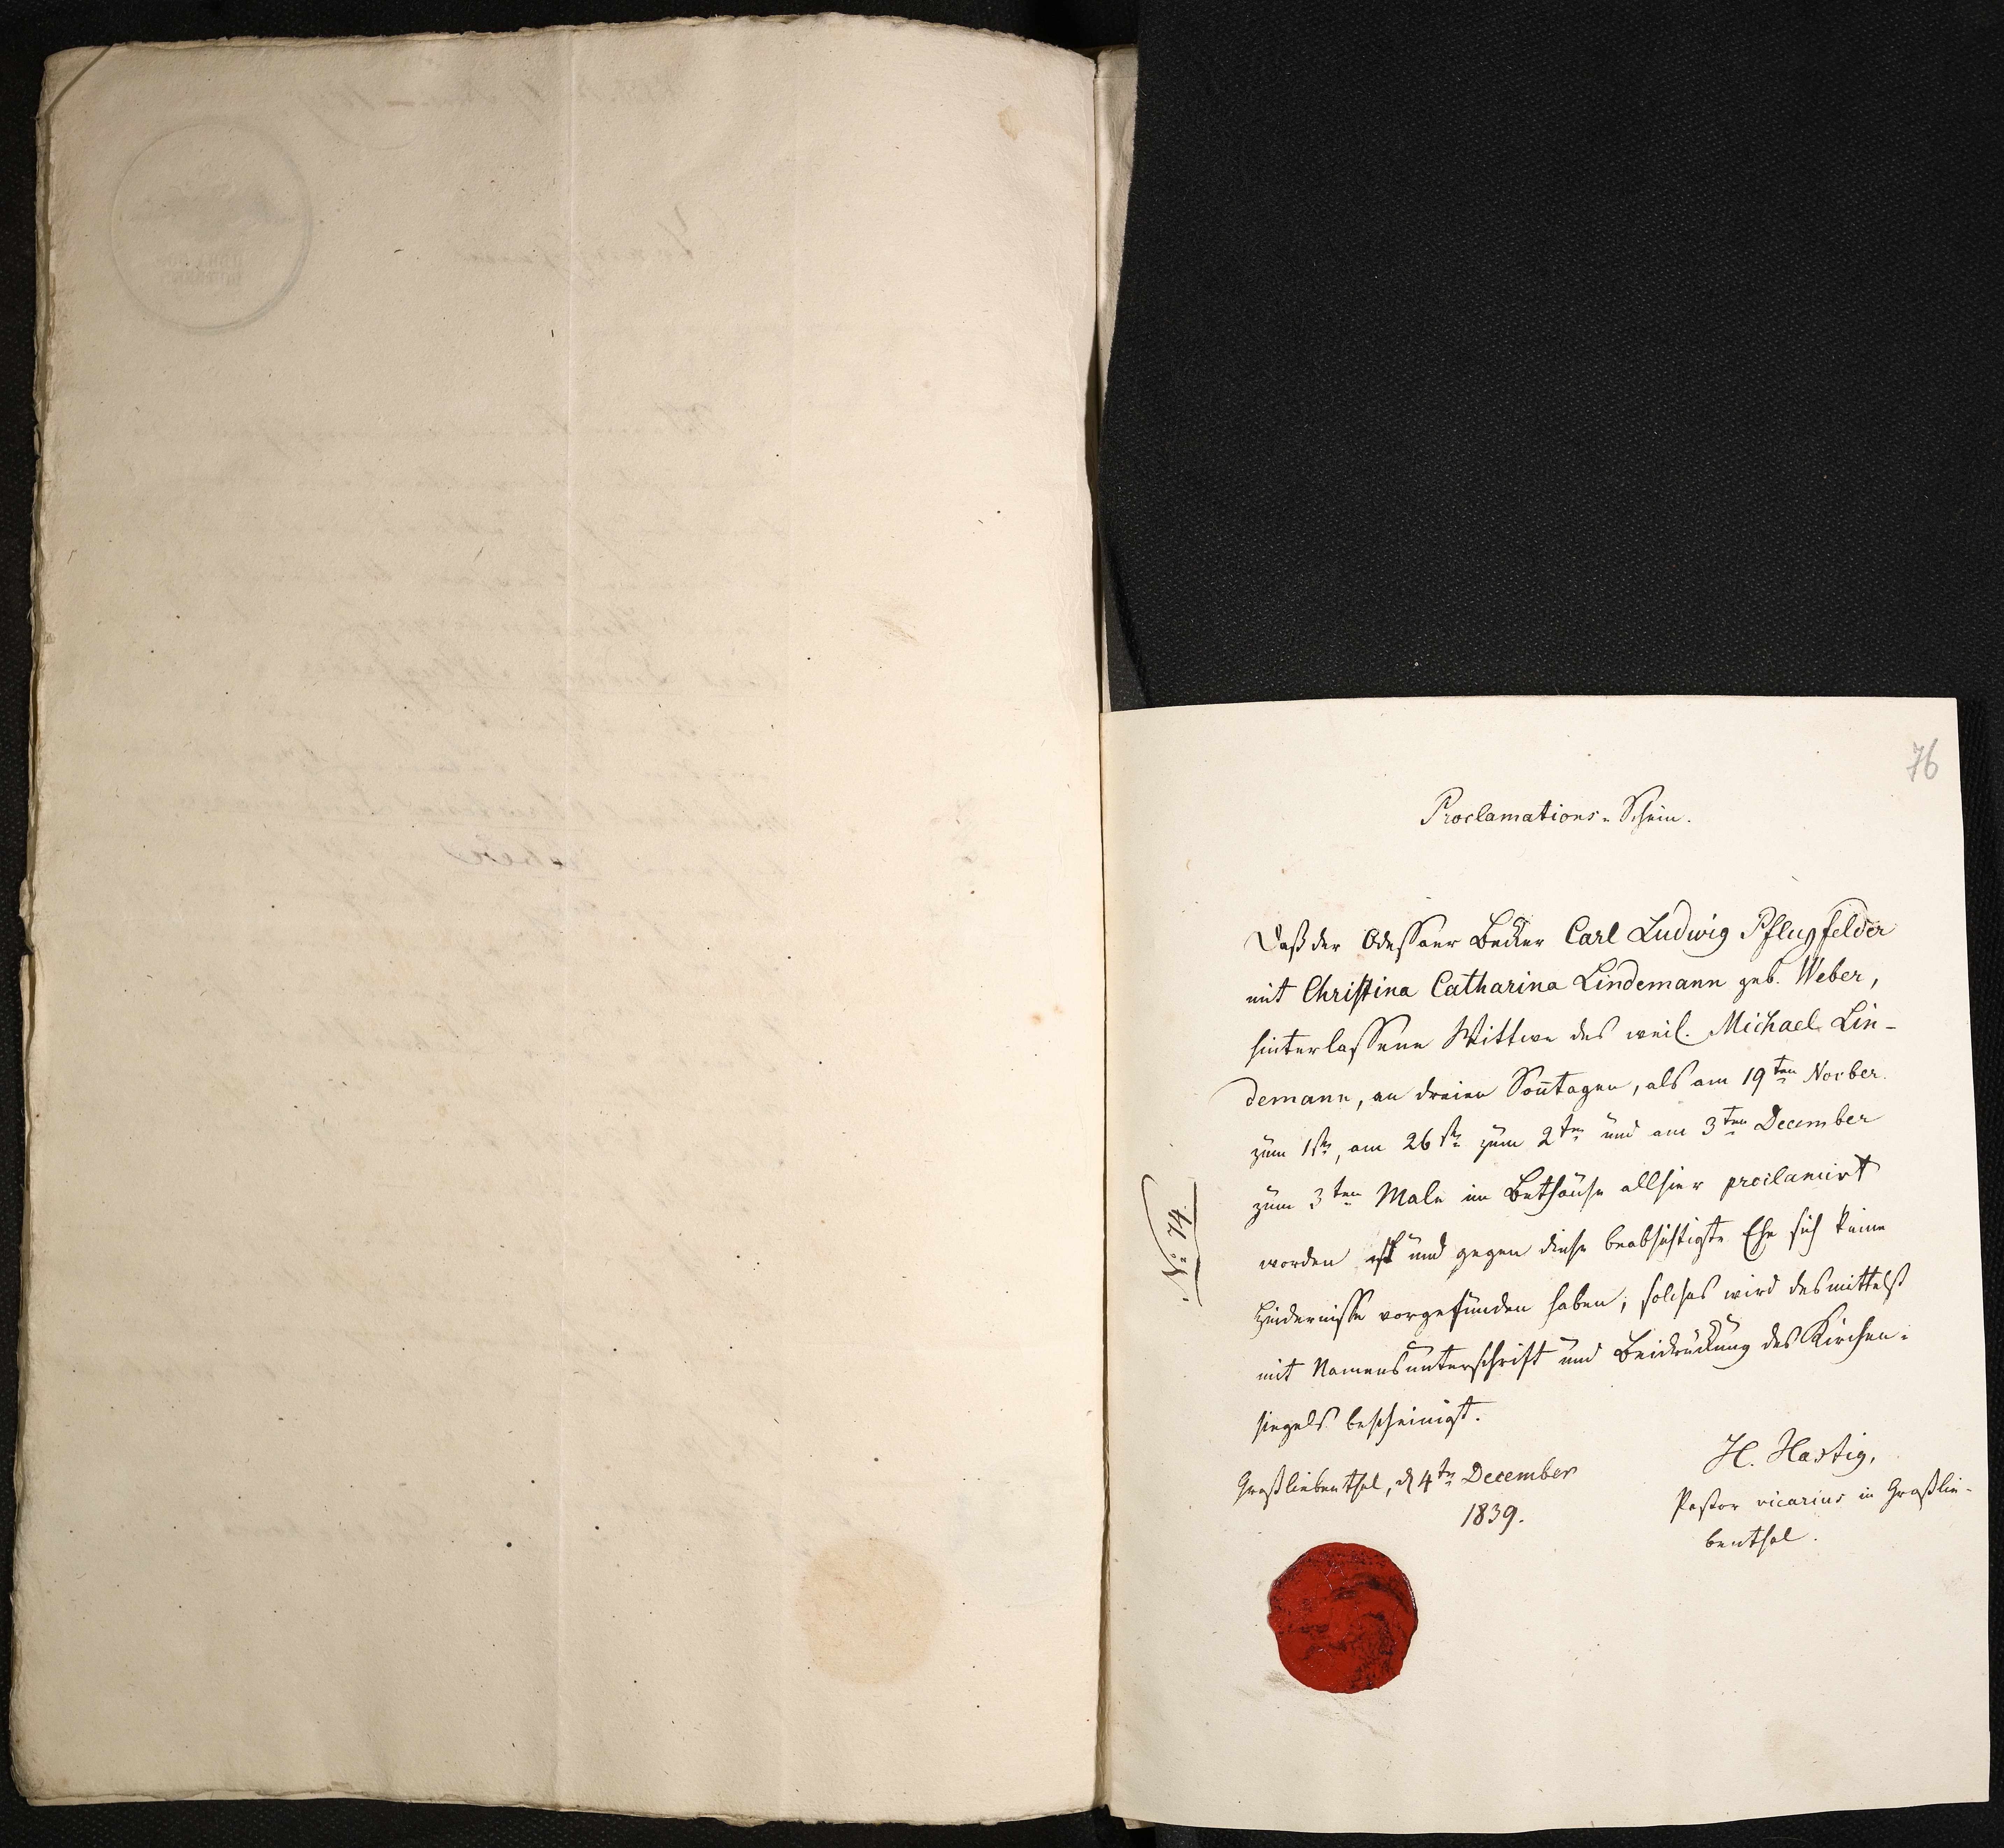 76
Proclamations-Schein.
Daß der Odessaer Becker Carl Ludwig Pflugfelder
mit Christina Catharina Lindemann geb. Weber,
hinterlassene Wittwe des weil. Michael Lin-
demann, an dreien Sontagen, als am 19ten Novber.
zum 1sten, am 26sten zum 2ten und am 3ten December
zum 3ten Male im Bethause allhier proclamirt
worden ist und gegen diese beabsichtigte Ehe sich keine
Hindernisse vorgefunden haben; solches wird desmittelst
mit Namensunterschrift und Beidrückung des Kirchen-
siegels bescheinigt.
Großliebenthal, d 4ten December
1839.
H. Hastig,
Pastor vicarius in Großlie-
benthal.
No 74.